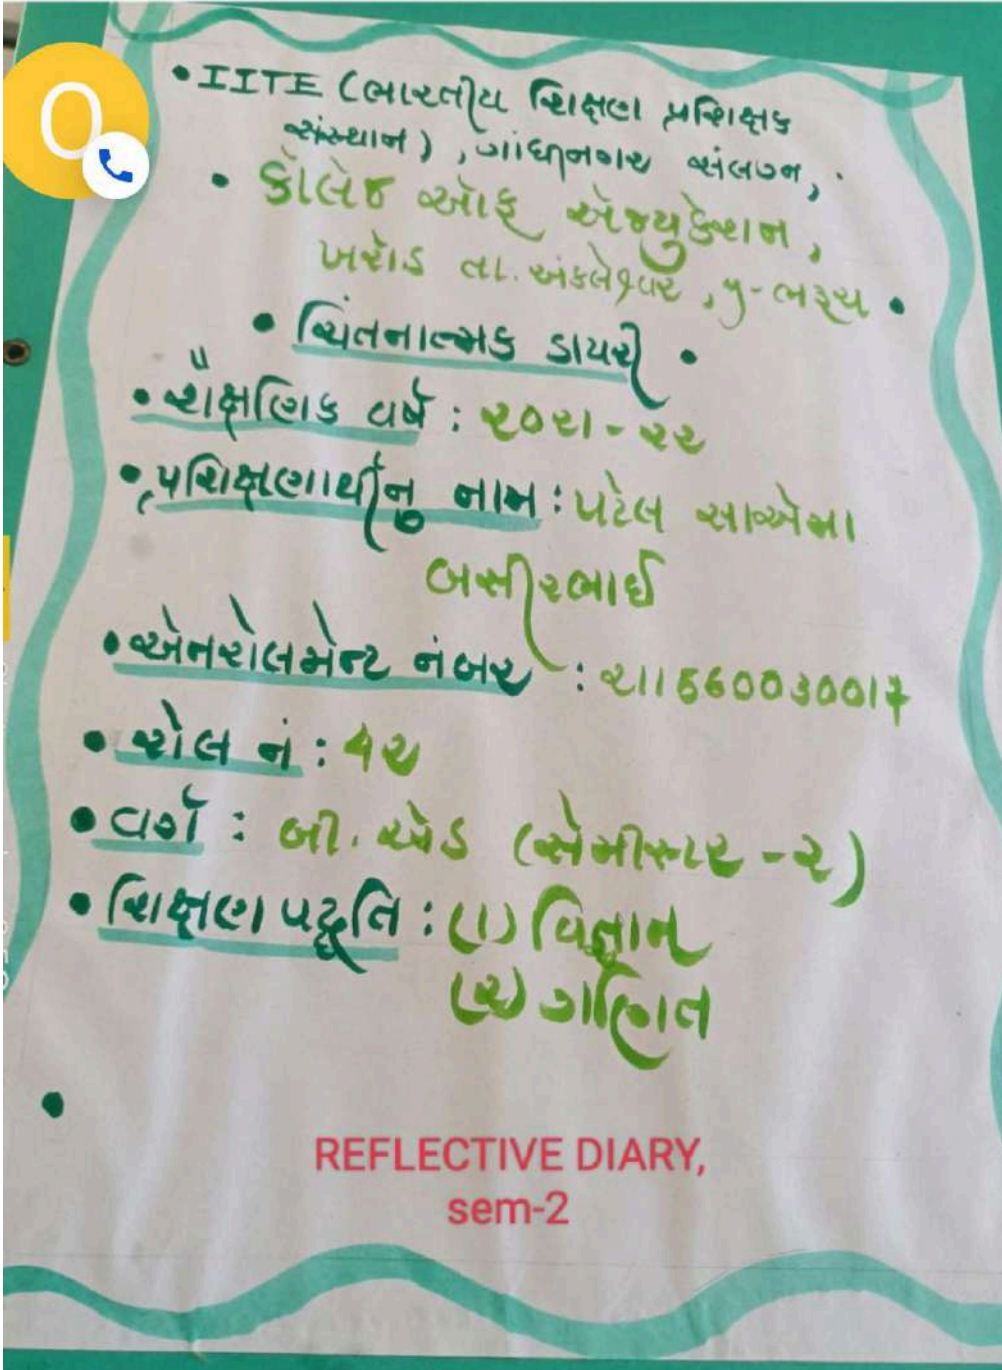 • IITE (ભારતીય શિક્ષણ પ્રશિક્ષક
સંસ્થાન), ગાંધીનગર સંલગ્ન,
• કૉલેજ ઑફ ઍજ્યુકેશન,
ખરોડ તા. અંકલેશ્વર, જી-ભરૂચ •
• ચિંતનાત્મક ડાયરી •
• શૈક્ષણિક વર્ષ : ૨૦૨૧-૨૨
• પ્રશિક્ષણાર્થીનું નામ : પટેલ સાએમા
બસીરભાઈ
• એનરોલમેન્ટ નંબર : ૨11660030017
• રોલ નં : ૫૨
• વર્ગ : બી. એડ (સેમીસ્ટર -૨)
• શિક્ષણ પદ્ધતિ : (૧) વિજ્ઞાન
(૨) ગણિત
REFLECTIVE DIARY,
sem-2